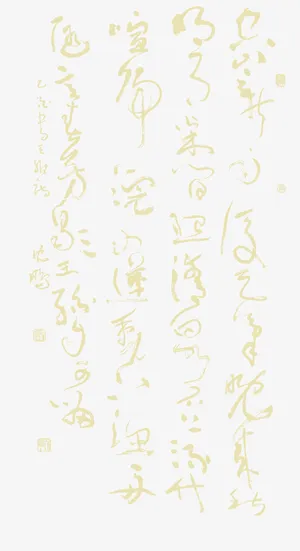 空山新雨後天氣晚來秋
明月松間照清泉石上流竹
喧歸浣女蓮動下漁舟
隨意春芳歇王孫自可留
王維詩
沈鵬